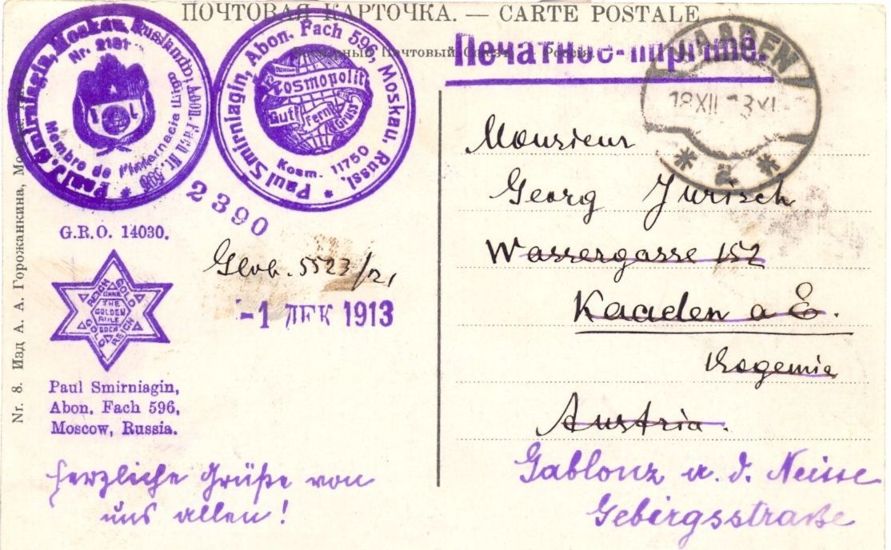 ПОЧТОВАЯ КАРТОЧКА. — CARTE POSTALE
Печатное-Imprimé.
KAADEN
18 XII 13 XI
* a *
Paul Smirniagin, Moskau, Russland, Abon. Fach Nr. 596
Nr. 2181
Membro de l'Internacia
Paul Smirniagin, Abon. Fach 596, Moskau. Russl. *
Cosmopolit
Gut Fern Gruss
Kosm. 11750
2390
G.R.O. 14030.
THE
GOLDEN
RULE
Paul Smirniagin,
Abon. Fach 596,
Moscow, Russia.
Glob. 5523/21
-1 ДЕК 1913
Nr. 8. Изд А. А. Горожанкина,
herzliche Grüße von
uns allen!
Monsieur
Georg Jurisch
Wassergasse 152
Kaaden a E.
Bogemia
Austria.
Gablonz a. d. Neisse
Gebirgsstraße